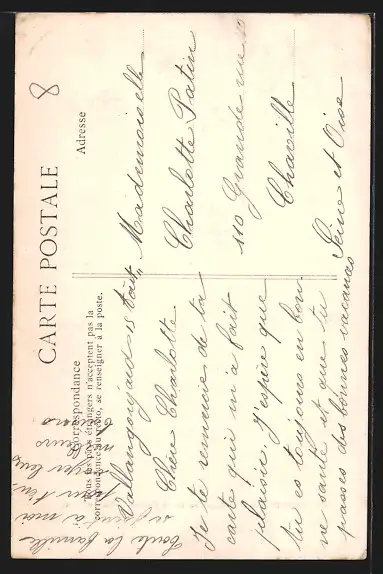 8
CARTE POSTALE
Correspondance
Tous les pays étrangers n'acceptent pas la
correspondance au recto, se renseigner à la poste.
Adresse
Mademoiselle
Charlotte Patin
110 Grande rue
Chaville
Seine et Oise
15 Août
Chère Charlotte
Je te remercie de ta
carte qui m'a fait
plaisir. J'espère que
tu es toujours en bon-
ne santé et que tu
passes des bonnes vacances
Toute la famille
se joint à moi
pour t'en-